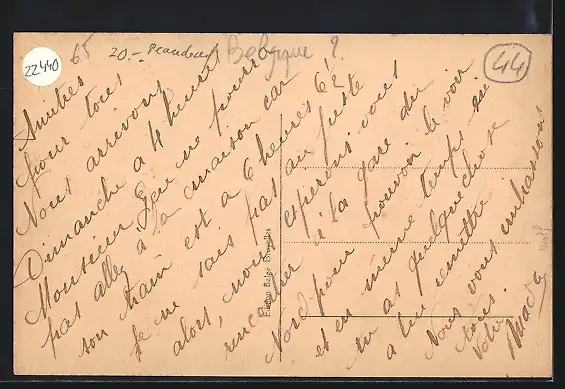 22440
65
20.-
Belgique ?
44
Amitiés
pour tous
Nous arrivons
Dimanche a 4 heures
Monsieur ne pourra
pas aller à la maison car
son train est a 6 heures 62
Je ne sais pas au juste
alors, nous esperons vous
rencontrer à la gare du
Nord pour pouvoir le voir
et en même temps si
tu as quelquechose
a lui remettre
Nous vous embrassons
tous.
Votre
Edition Belge Bruxelles